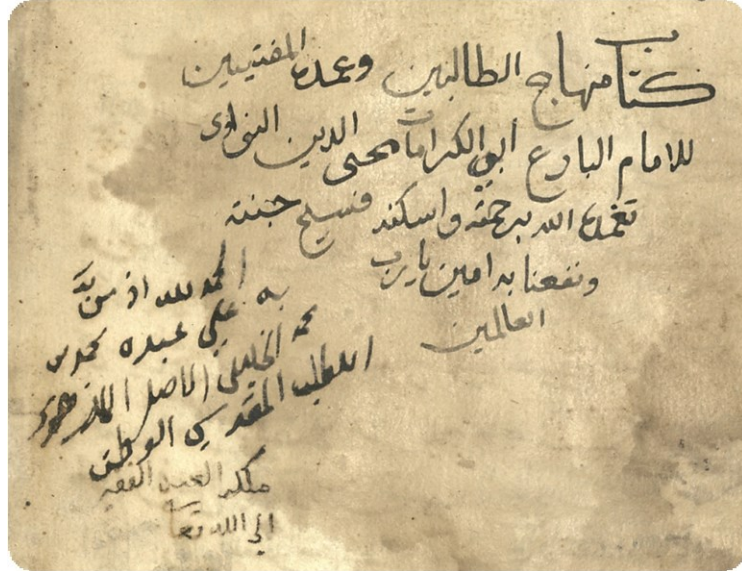 كتاب منهاج الطالبين وعمدة المفتيين
للامام البارع أبي الكرامات محيى الدين النواوى
تغمده الله برحمته واسكنه فسيح جنته
ونفعنا به امين يارب
العالمين
الحمد لله اذ من
به علي عبده محمد بن
محمد الخليلي
المقدسي الوطن
ملكه العبد الفقير
الي الله تعا